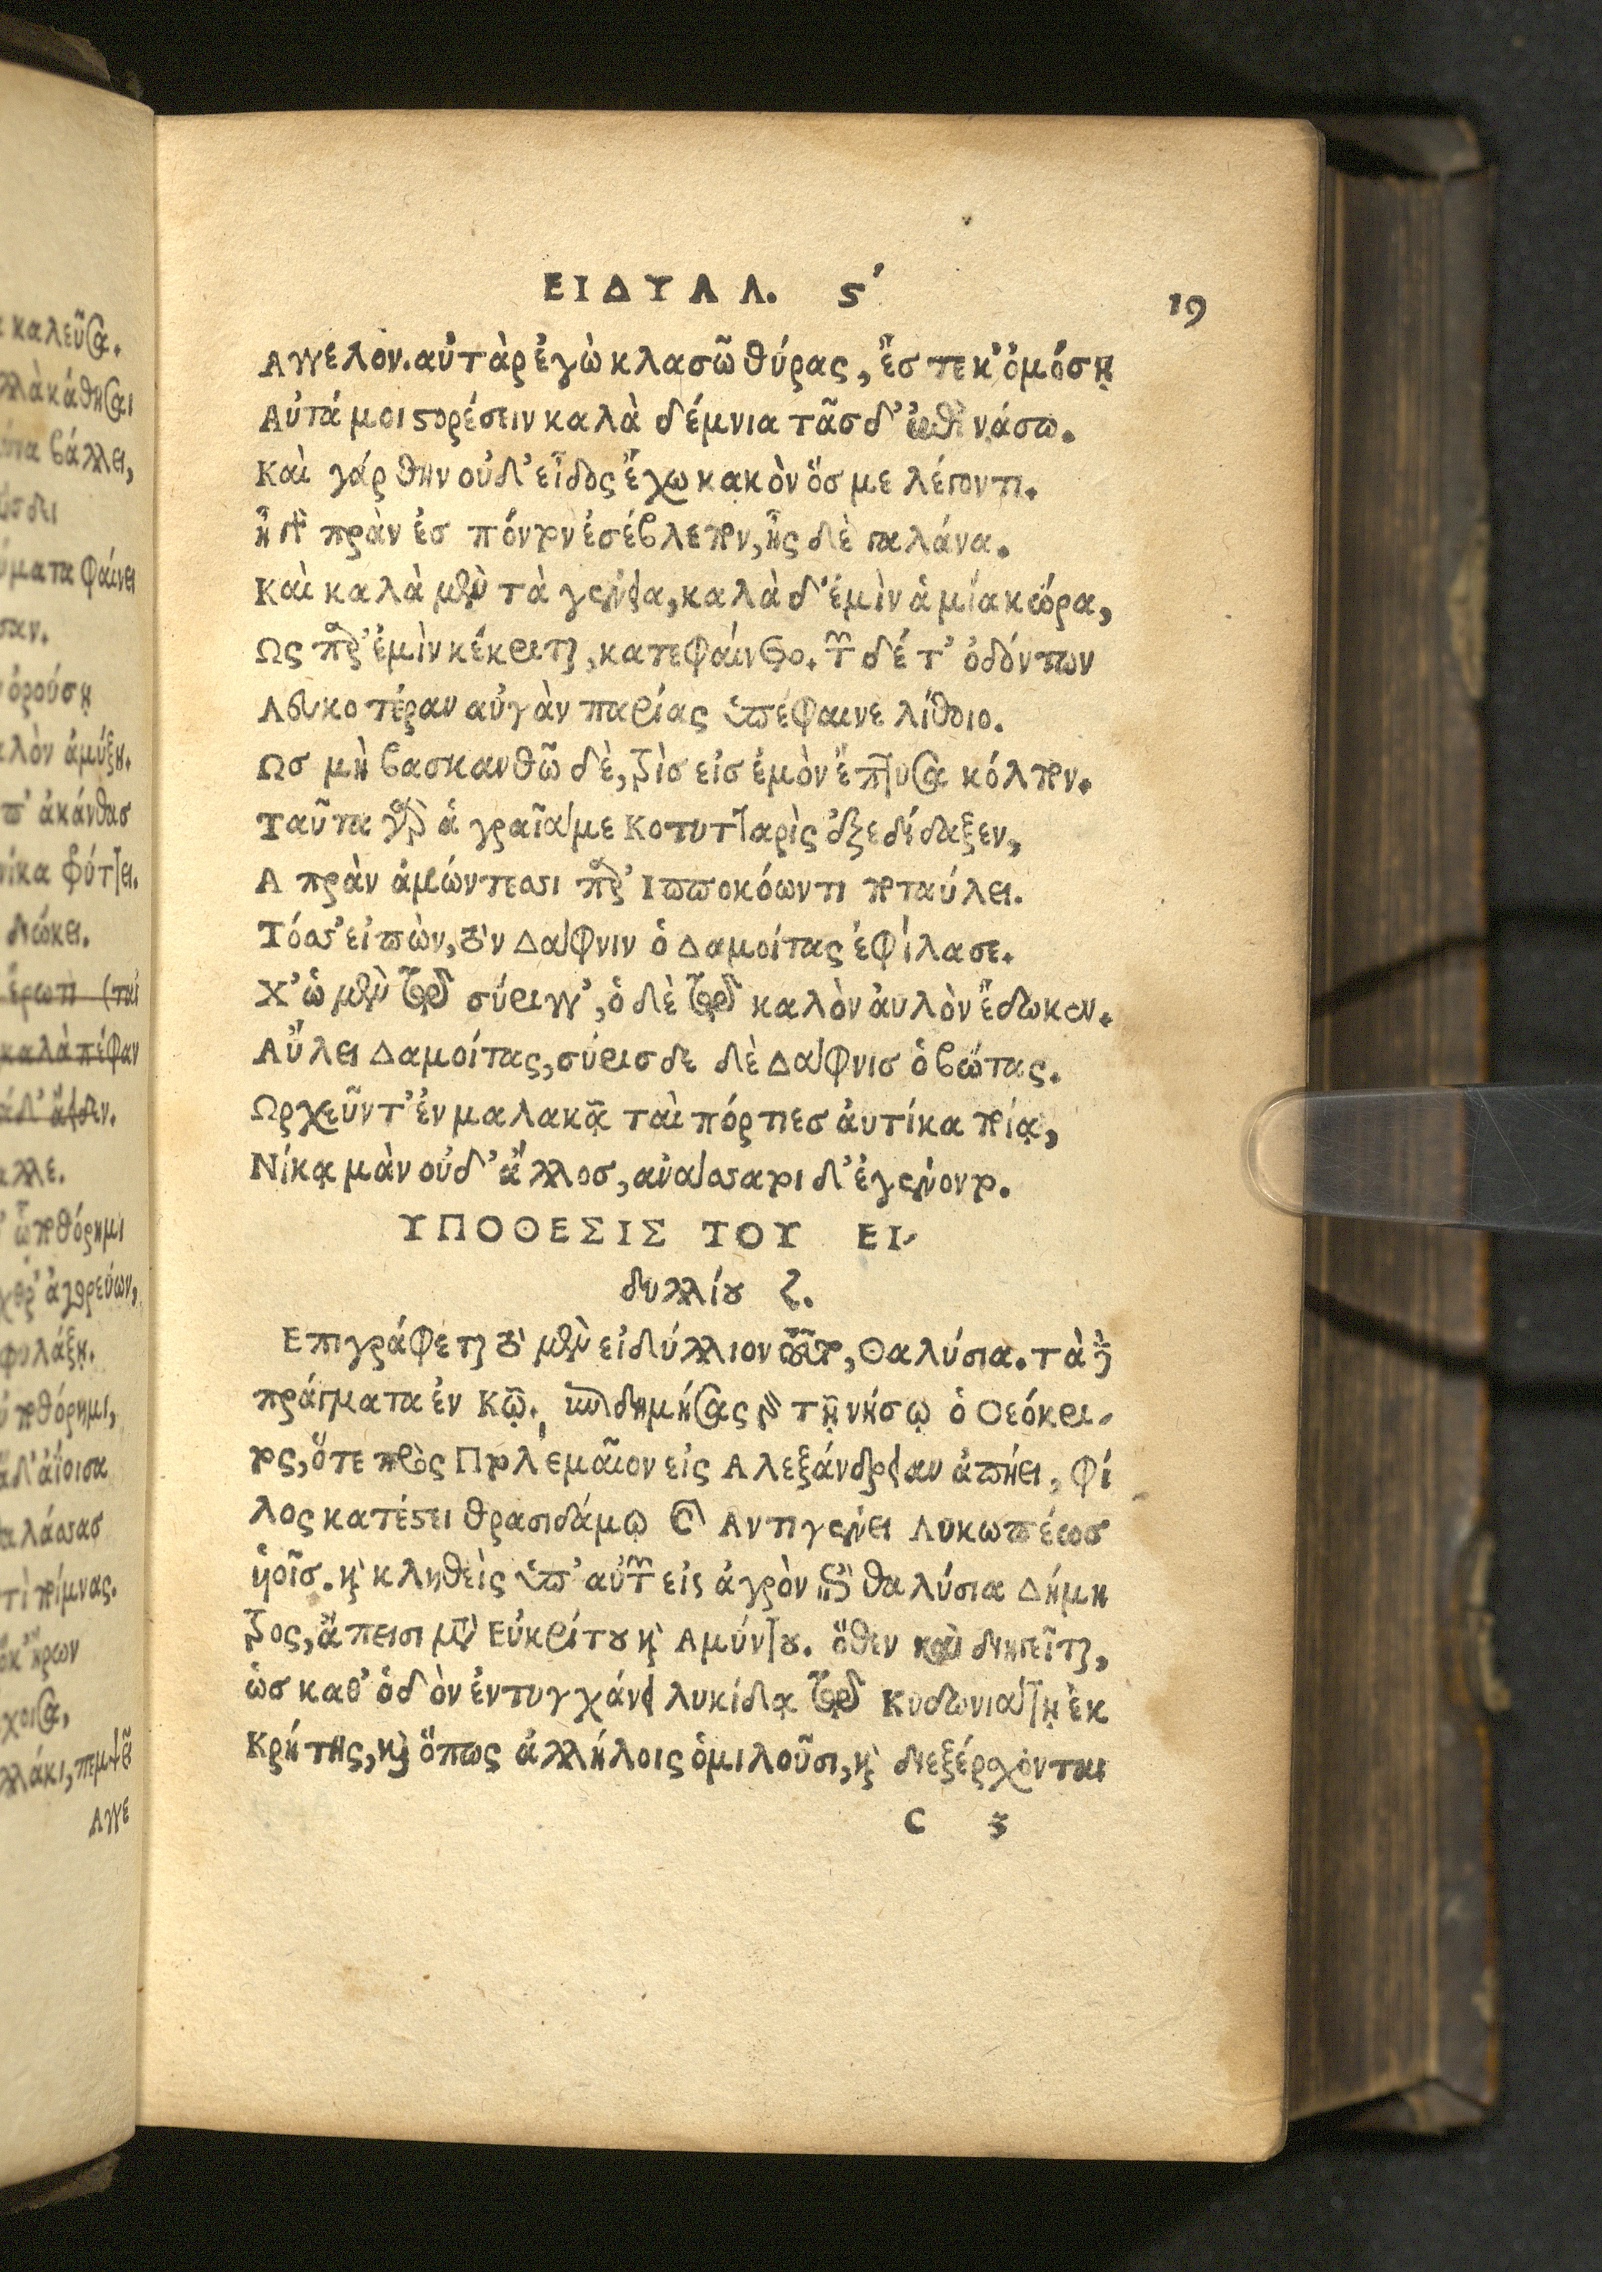 ΕΙΔΥΛΛ. ς'
19
Αγγελον. αὐτὰρ ἐγὼ κλασῶ θύρας, ἔς τε κ' ὀμόσῃ
Αὐτά μοι στορέσειν καλὰ δέμνια τᾶσδ' ἐπὶ νάσω.
Καὶ γάρ θην οὐδ' εἶδος ἔχω κακὸν ὅς με λέγοντι.
ἦ γὰρ πρὰν ἐς πόντον ἐσέβλεπον, ἦς δὲ γαλάνα.
Καὶ καλὰ μὲν τὰ γένεια, καλὰ δ' ἐμὶν ἁ μία κώρα,
Ως παρ' ἐμὶν κέκριται, κατεφαίνετο. τῶν δέ τ' ὀδόντων
Λευκοτέραν αὐγὰν παρίας ὑπέφαινε λίθοιο.
Ως μὴ βασκανθῶ δὲ, τρὶς εἰς ἐμὸν ἔπτυσα κόλπον.
Ταῦτα γὰρ ἁ γραῖά με Κοτυτταρὶς ἐξεδίδαξεν,
Α πρὰν ἀμώντεσσι παρ' Ιπποκόωντι ποταύλει.
Τόσσ' εἰπὼν, τὸν Δάφνιν ὁ Δαμοίτας ἐφίλασε.
Χ' ὡ μὲν τῷ σύριγγ', ὁ δὲ τῷ καλὸν αὐλὸν ἔδωκεν.
Αὔλει Δαμοίτας, σύρισδε δὲ Δάφνις ὁ βώτας.
Ωρχεῦντ' ἐν μαλακᾷ ταὶ πόρτιες αὐτίκα ποίᾳ,
Νίκα μὰν οὐδ' ἄλλος, ἀνάσσατοι δ' ἐγένοντο.
ΥΠΟΘΕΣΙΣ ΤΟΥ ΕΙ-
δυλλίου ζ.
Επιγράφεται τὸ μὲν εἰδύλλιον τοῦτο, Θαλύσια. τὰ δὲ
πράγματα ἐν Κῷ. ἐπιδημήσας γὰρ τῇ νήσῳ ὁ Θεόκρι-
τος, ὅτε πρὸς Πτολεμαῖον εἰς Αλεξάνδρειαν ἀπῄει, φί
λος κατέστη Θρασιδάμῳ καὶ Αντιγένει Λυκωπέως
ἡοῖσ. καὶ κληθεὶς ὑπ' αὐτῶν εἰς ἀγρὸν ἐπὶ θαλύσια Δήμη
τρος, ἄπεισι μετ' Εὐκρίτου καὶ Αμύντου. ὅθεν καὶ διηγεῖται,
ὡς καθ' ὁδὸν ἐντυγχάνει λυκίδᾳ τῷ Κυδωνιάτῃ ἐκ
Κρήτης, καὶ ὅπως ἀλλήλοις ὁμιλοῦσι, καὶ διεξέρχονται
C 3